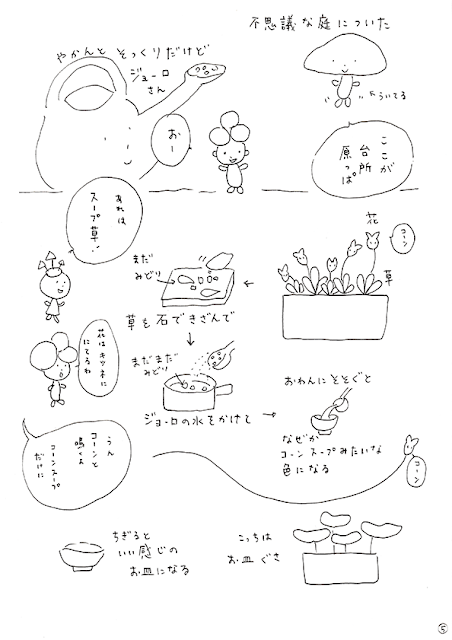 不思議な庭についた
やかんと そっくりだけど
ジョーロ
さん
おー
ういてる
ここが
台所
原っぱ
あれは
スープ草!
花
コーン
草
まだ
みどり
草を石できざんで
花はキツネに
にてるね
まだまだ
みどり
ジョーロの水をかけて
おわんにそそぐと
なぜか
コーンスープみたいな
色になる
コーン
うん
コーンと
鳴くよ
コーンスープ
だけに
ちぎると
いい感じの
お皿になる
こっちは
お皿ぐさ
⑤